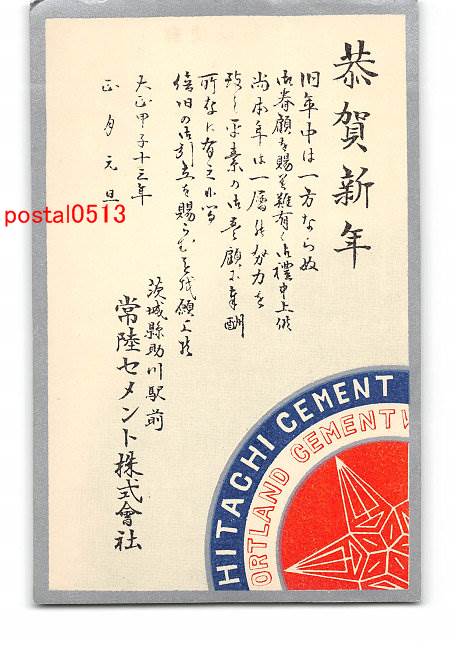 恭賀新年
旧年中は一方ならぬ
御眷顧を賜り難有く御禮申上候
尚本年は一層の努力を
致し平素の御愛顧に奉酬
所存に有之候間
倍旧の御引立を賜らむ事を伏願上候
大正甲子十三年
正月元旦
茨城縣助川駅前
常陸セメント株式會社
HITACHI CEMENT
ORTLAND CEMENT
postal0513